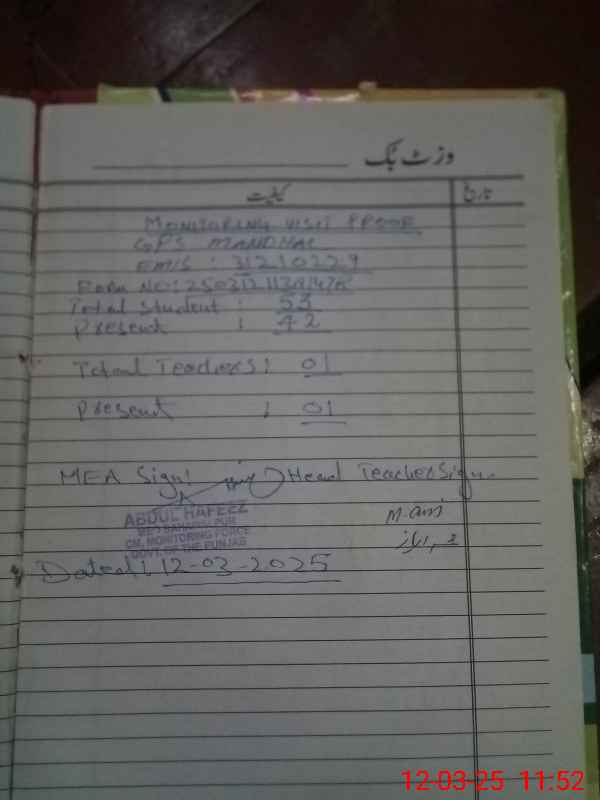 وزٹ بک
کیفیت تاریخ
MONITORING VISIT PROOF
GPS MANDHAL
EMIS : 31210229
Total Student : 53
Present : 42
Total Teachers : 01
Present : 01
MEA Sign: Head Teacher Sign.
ABDUL HAFEEZ
CM, MONITORING FORCE
GOVT. OF THE PUNJAB
Dated: 12-03-2025
12-03-25 11:52